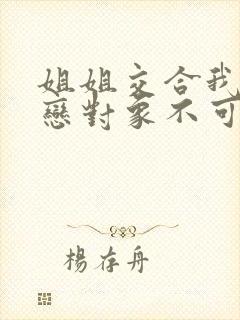 姐姐交合我
戀對象不可
楊存舟